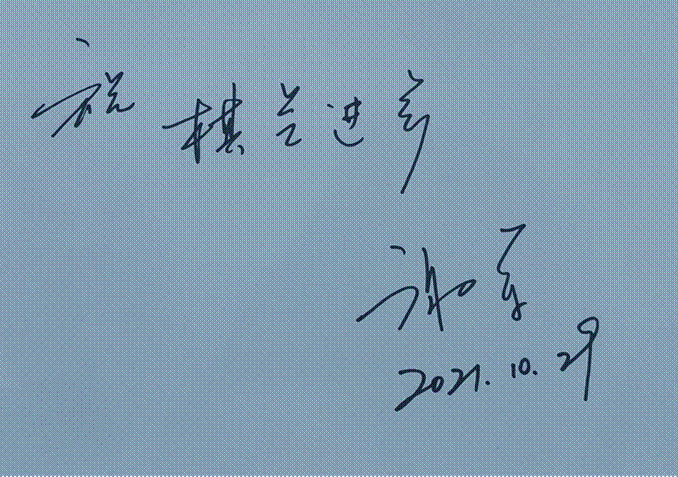 祝棋艺进步
谢军
2021.10.29